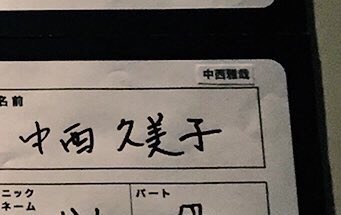 中西雅哉
名前
中西 久美子
ニック
ネーム
パート